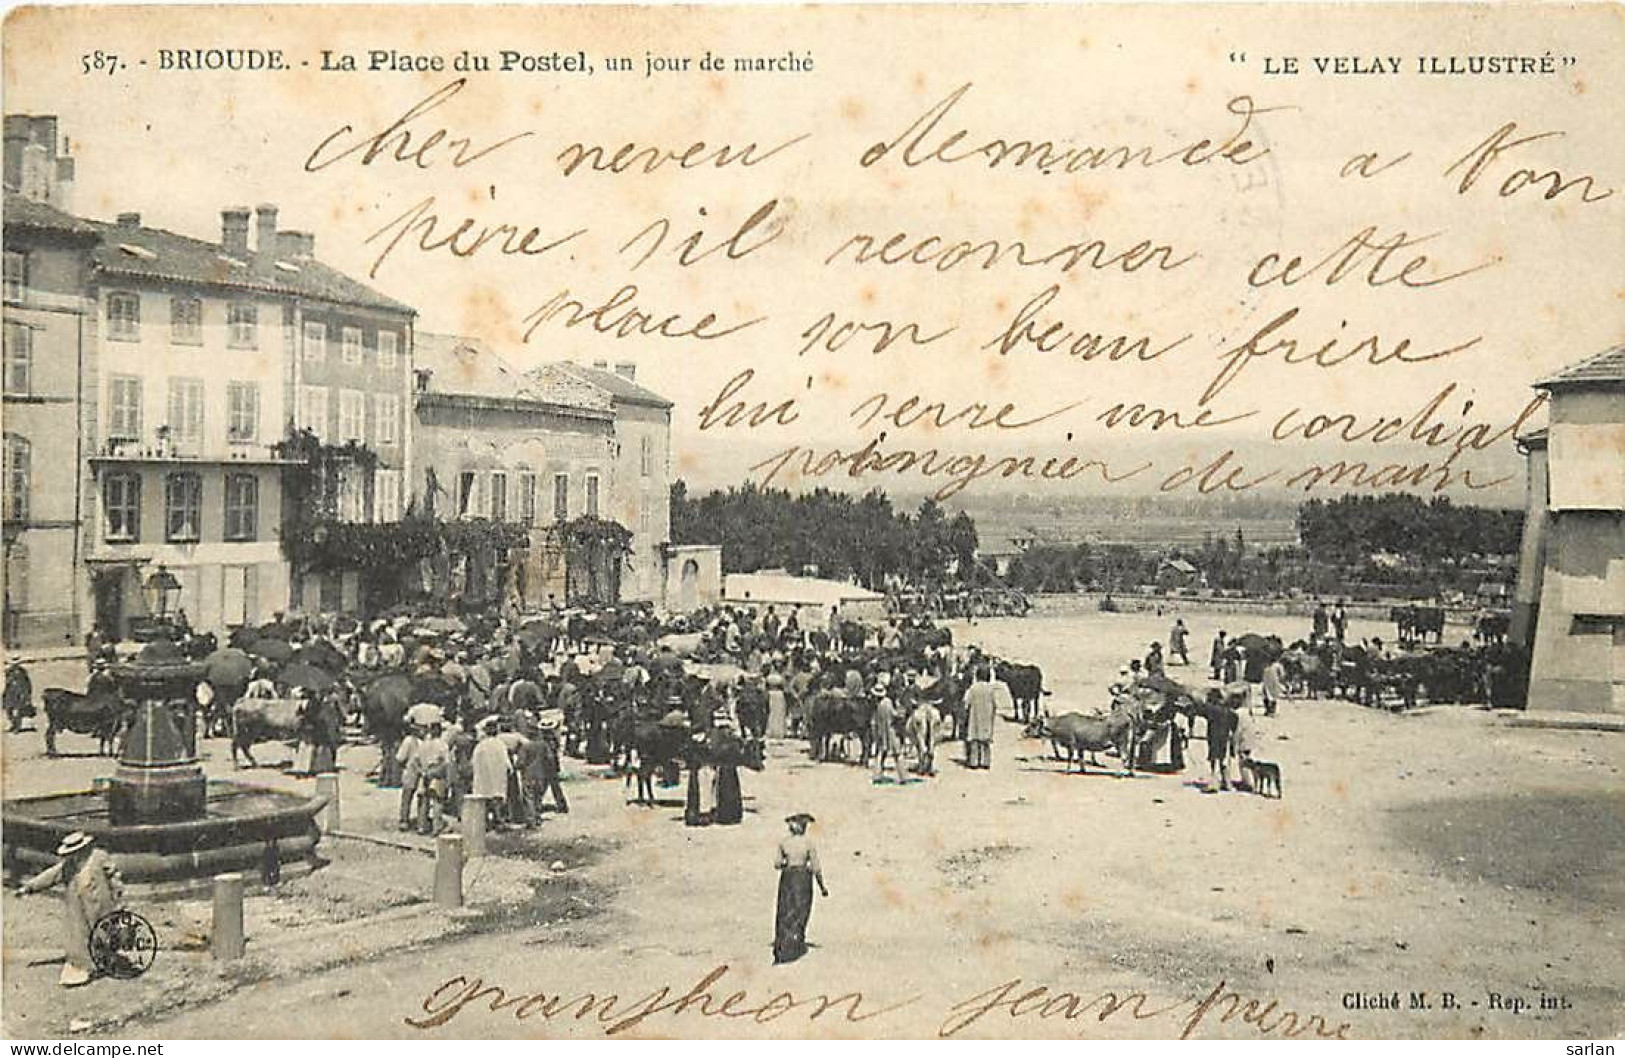 587. - BRIOUDE. - La Place du Postel, un jour de marché
" LE VELAY ILLUSTRÉ"
cher neveu demande a ton
père sil reconner cette
place son beau frire
lui serre une cordial
poingnier de main
Granjheon jean pierre
Cliché M. B. - Rep. int.
sarlan